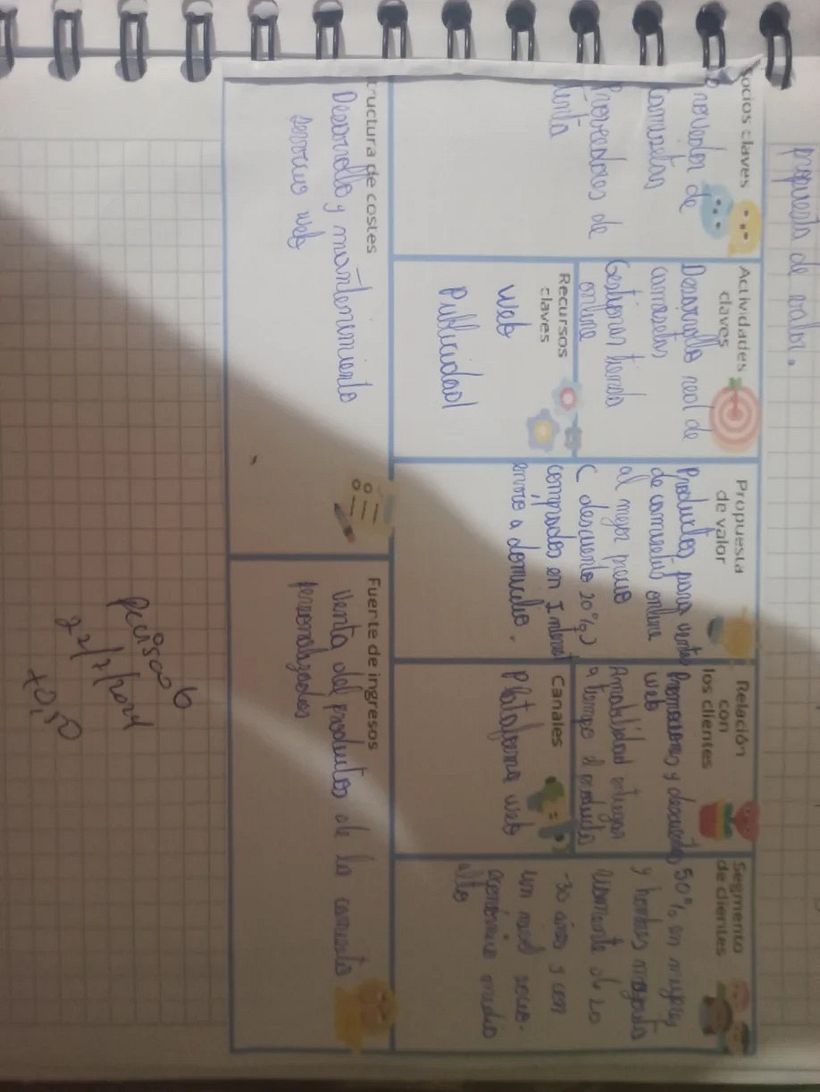 propuesta de valor.
Socios claves
Proveedor de
camisetas
Proveedores de
tinta
Actividades
claves
Desarrollo real de
camisetas
Gestionar tienda
online
Recursos
claves
Web
Publicidad
Propuesta
de valor
Productos para venta
de camisetas online
al mejor precio
( descuento 20% )
comprados en Internet
envio a domicilio.
Relación
con
los clientes
Promociones y descuentos
web
Amabilidad entregar
a tiempo el producto
Canales
Plataforma web
Segmento
de clientes
50% en mujeres
y hombres mayorita
riamente de 20
-30 años y con
un nivel socio-
económico medio
alto
ructura de costes
Desarrollo y mantenimiento
servicio web
Fuente de ingresos
Venta del productos de la camiseta
personalizadas
22/7/2024
+0,50